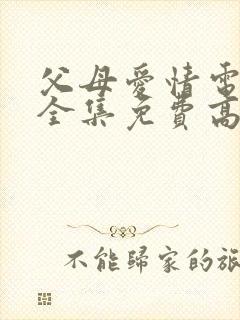 父母爱情電
全集免費高
不能歸家的旅